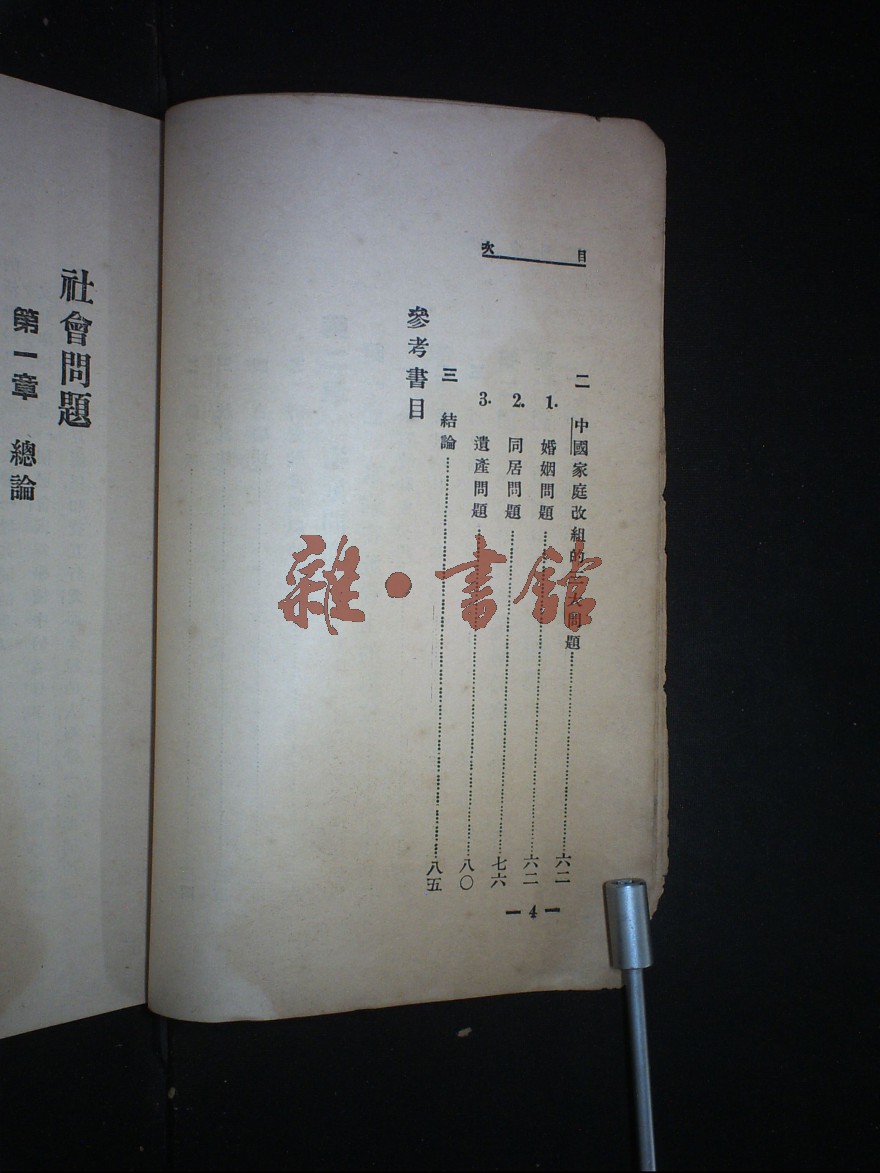 目次
二 中國家庭改組的三大問題……六二
1. 婚姻問題……六二
2. 同居問題……七六
3. 遺產問題……八〇
三 結論……八五
參考書目
—4—
社會問題
第一章 總論
雜·書館